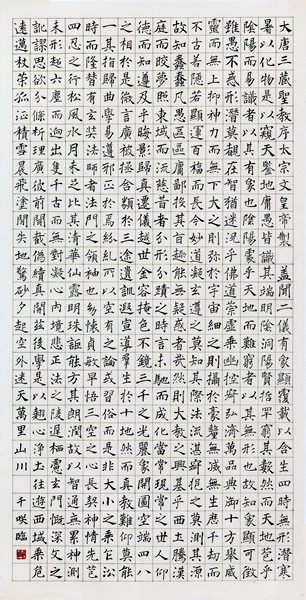 大唐三藏聖教序太宗文皇帝製 蓋聞二儀有象顯覆載以含生四時無形潛寒
暑以化物是以窺天鑑地庸愚皆識其端明陰洞陽賢哲罕窮其數然而天地苞乎
陰陽而易識者以其有象也陰陽處乎天地而難窮者以其無形也故知象顯可徵
雖愚不惑形潛莫覩在智猶迷況乎佛道崇虛乘幽控寂弘濟萬品典御十方舉威
靈而無上抑神力而無下大之則彌於宇宙細之則攝於毫釐無滅無生歷千劫而
不古若隱若顯運百福而長今妙道凝玄遵之莫知其際法流湛寂挹之莫測其源
故知蠢蠢凡愚區區庸鄙投其旨趣能無疑惑者哉然則大教之興基乎西土騰漢
庭而皎夢照東域而流慈昔者分形分跡之時言未馳而成化當常現常之世人仰
德而知遵及乎晦影歸真遷儀越世金容掩色不鏡三千之光麗象開圖空端四八
之相於是微言廣被拯含類於三途遺訓遐宣導群生於十地然而真教難仰莫能
一其指歸曲學易遵邪正於焉紛糾所以空有之論或習俗而是非大小之乘乍沿
時而隆替有玄奘法師者法門之領袖也幼懷貞敏早悟三空之心長契神情先苞
四忍之行松風水月未足比其清華仙露明珠詎能方其朗潤故以智通無累神測
未形超六塵而迥出隻千古而無對凝心內境悲正法之陵遲栖慮玄門慨深文之
訛謬思欲分條析理廣彼前聞截偽續真開茲後學是以翹心淨土往遊西域乘危
遠邁杖策孤征積雪晨飛塗間失地驚砂夕起空外迷天萬里山川 千咲臨